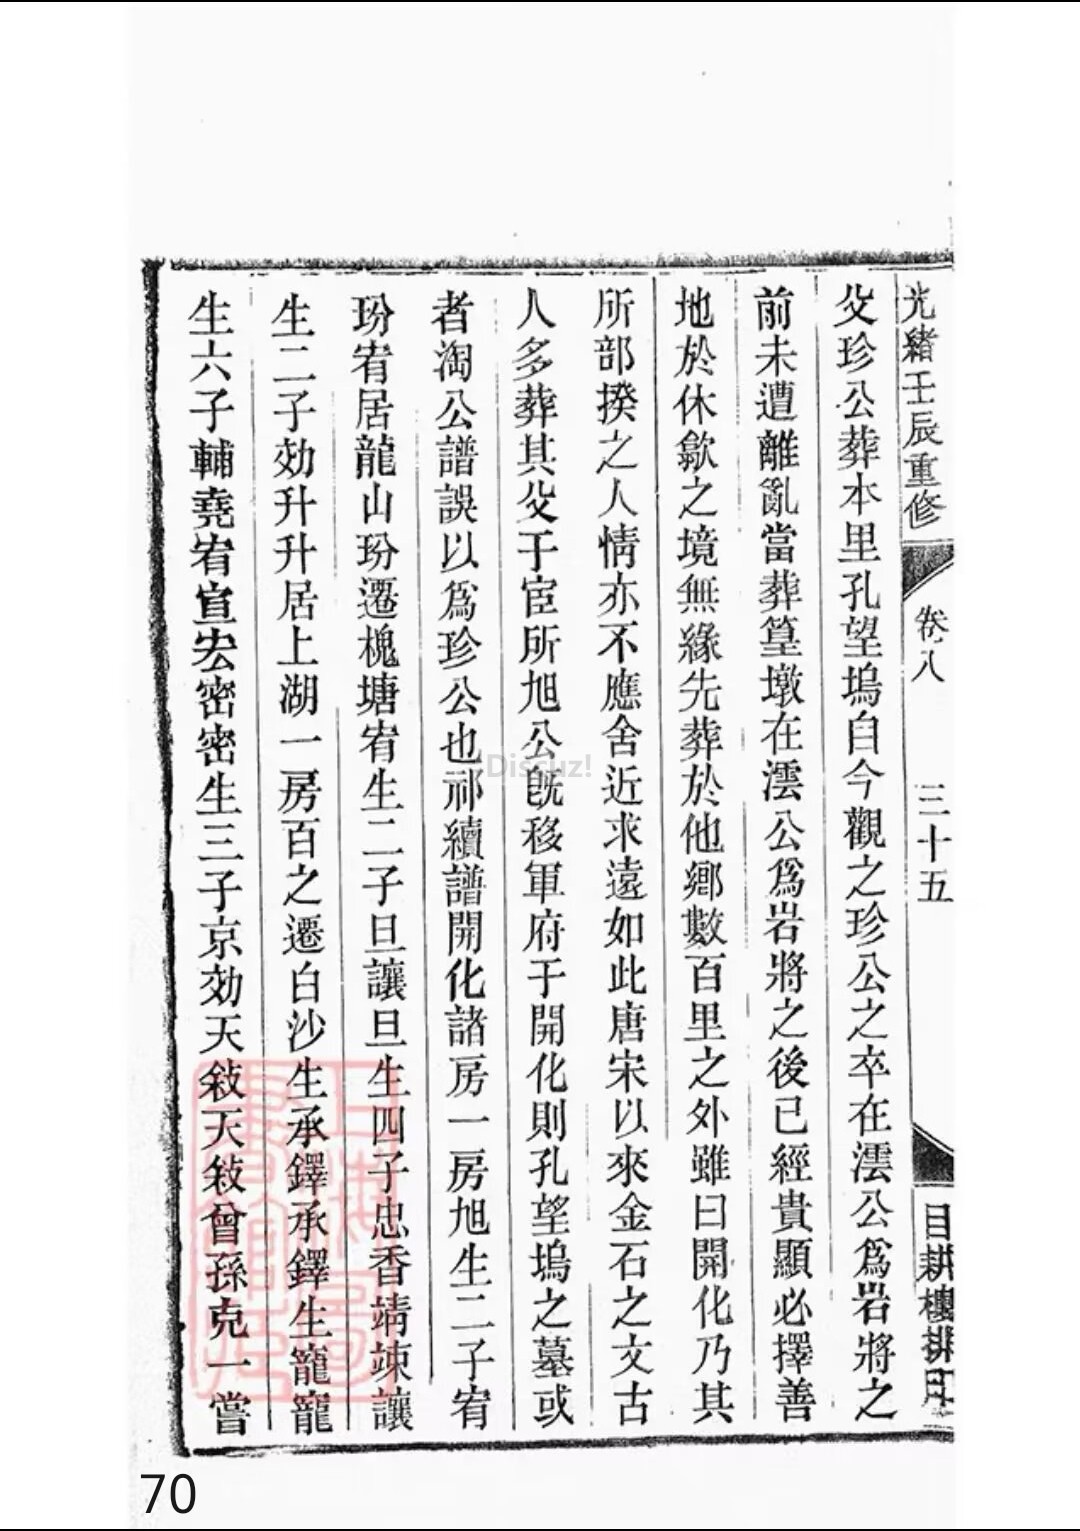 光緒壬辰重修
卷八
三十五
目耕樓排印
父珍公葬本里孔望塢自今觀之珍公之卒在澐公爲岩將之
前未遭離亂當葬篁墩在澐公爲岩將之後已經貴顯必擇善
地於休歙之境無緣先葬於他鄉數百里之外雖曰開化乃其
所部揆之人情亦不應舍近求遠如此唐宋以來金石之文古
人多葬其父于宦所旭公旣移軍府于開化則孔望塢之墓或
者淘公譜誤以爲珍公也祁續譜開化諸房一房旭生二子宥
玢宥居龍山玢遷槐塘宥生二子旦讓旦生四子忠香靖竦讓
生二子効升升居上湖一房百之遷白沙生承鐸承鐸生寵寵
生六子輔堯宥宣宏密密生三子京効天敍天敍曾孫克一嘗
Discuz!
70